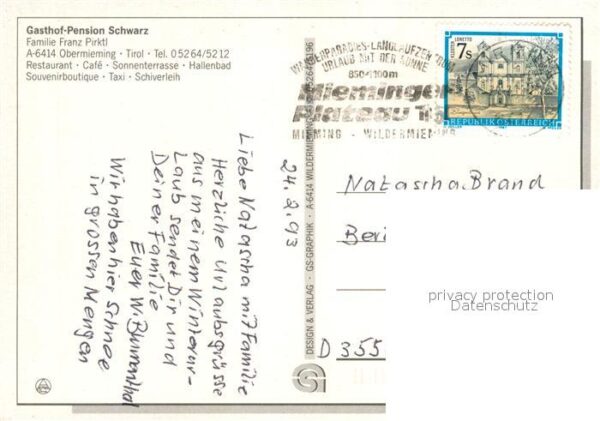 Gasthof-Pension Schwarz
Familie Franz Pirktl
A-6414 Obermieming · Tirol · Tel. 05264/5212
Restaurant · Café · Sonnenterrasse · Hallenbad
Souvenirboutique · Taxi · Schiverleih
WANDERPARADIES-LANGLAUFZENTRUM
URLAUB MIT DER SONNE
850-1100m
Mieminger
Plateau
MIEMING - WILDERMIEMING
KLOSTER LORETTO
7S
REPUBLIK ÖSTERREICH
24.2.93
Liebe Natascha mit Familie
Herzliche Urlaubsgrüsse
aus meinem Winterur-
Laub sendet Dir und
Deiner Familie
Euer W. Blumenthal
Wir haben hier Schnee
in grossen Mengen
DESIGN & VERLAG · GS-GRAPHIK · A-6414 WILDERMIEMING
Natascha Brand
Ber
D 355
privacy protection
Datenschutz